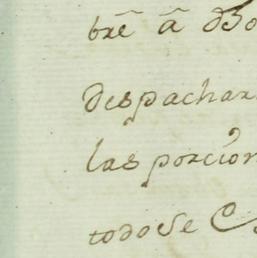 brê â
despachar
las porcion
todo se